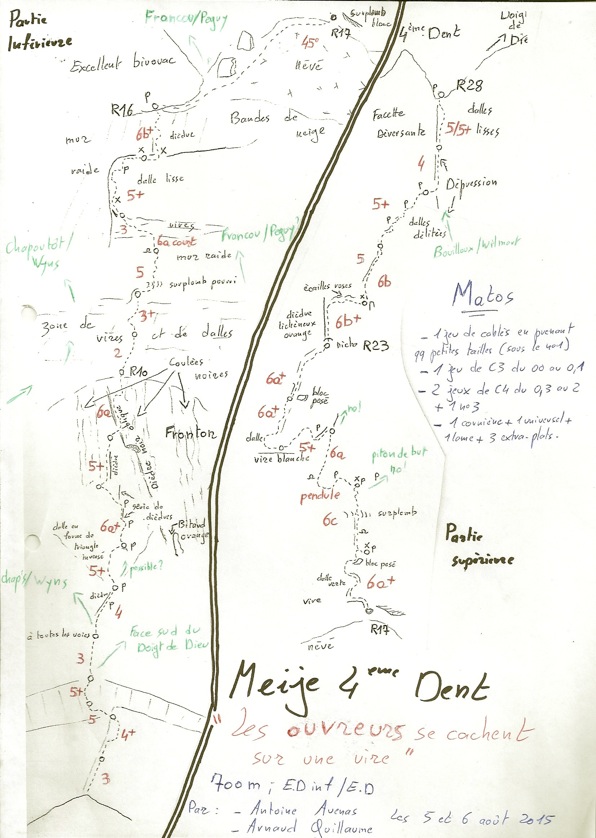 Partie
Inférieure
Francou/Peguy
surplomb
blanc
R17
45°
névé
Excellent bivouac
R16
P
6b+
dièdre
Bandes de
neige
mur
raide
P
dalle lisse
5+
3
vires
6a court
Francou/Peguy
Chapoutot/
Wyns
mur raide
5
surplomb pourri
3+
zone de
vires et de dalles
2
R10
Coulées
noires
6a
oblique
Fronton
5+
dièdre
Dièdre noir
P
série de
dièdres
dalle en
forme de
triangle
inversé
6a+
P
Bitard
orange
P
5+
possible?
Chap's/Wyns
P
dièdre
4
à toutes les voies
P
Face sud du
Doigt de Dieu
3
5+
5
4+
3
4ème Dent
Doigt
de
Die
P
R28
Facette
Déversante
dalles
5/5+ lisses
4
P
Dépression
5+
dalles
délitées
Bouilloux/Wilmart
5
6b
écailles roses
dièdre
lichéneux
orange
6b+
niche R23
6a+
bloc
posé
6a+
no!
P
dalle
5+
vire blanche
6a
P
pendule
P
P
piton de but
no!
6c
surplomb
P
bloc posé
dalle
verte
6a+
vire
R17
névé
Matos
- 1 jeu de cablés en prenant
99 petites tailles (sous le n°1)
- 1 jeu de C3 du 00 au 0,1
- 2 jeux de C4 du 0,3 au 2
+ 1 n°3
- 1 cornière + 1 universel +
1 lame + 3 extra-plats.
Partie
supérieure
Meije 4ème Dent
"Les ouvreurs se cachent
sur une vire"
700m ; ED inf / E.D
Par : - Antoine Avenas
- Arnaud Guillaume
Les 5 et 6 août 2015